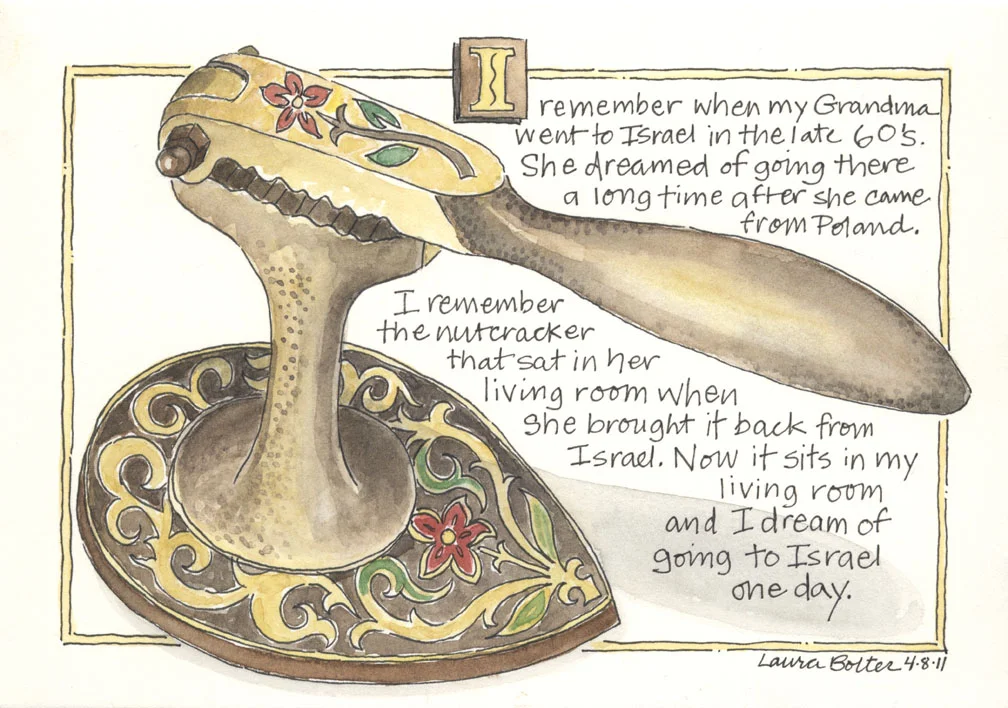 I remember when my Grandma
went to Israel in the late 60's.
She dreamed of going there
a long time after she came
from Poland.
I remember
the nutcracker
that sat in her
living room when
she brought it back from
Israel. Now it sits in my
living room
and I dream of
going to Israel
one day.
Laura Bolter 4·8·11